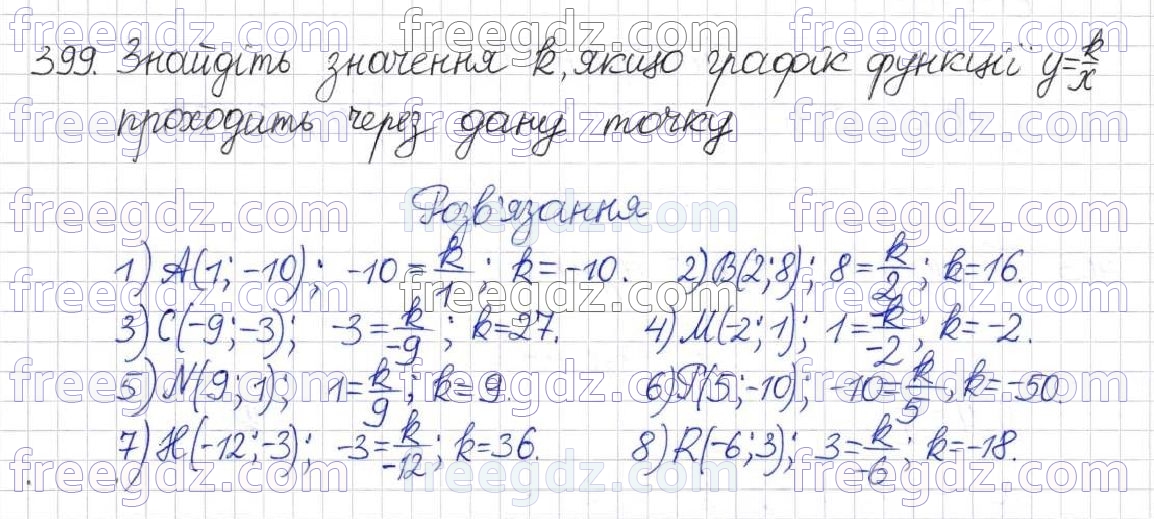 399. Знайдіть значення k, якщо графік функції y=k/x
проходить через дану точку
Розв'язання
1) A(1; -10); -10 = k/1; k = -10. 2) B(2; 8); 8 = k/2; k = 16.
3) C(-9; -3); -3 = k/-9; k = 27. 4) M(-2; 1); 1 = k/-2; k = -2.
5) N(9; 1); 1 = k/9; k = 9. 6) P(5; -10); -10 = k/5; k = -50.
7) H(-12; -3); -3 = k/-12; k = 36. 8) R(-6; 3); 3 = k/-6; k = -18.
freegdz.com